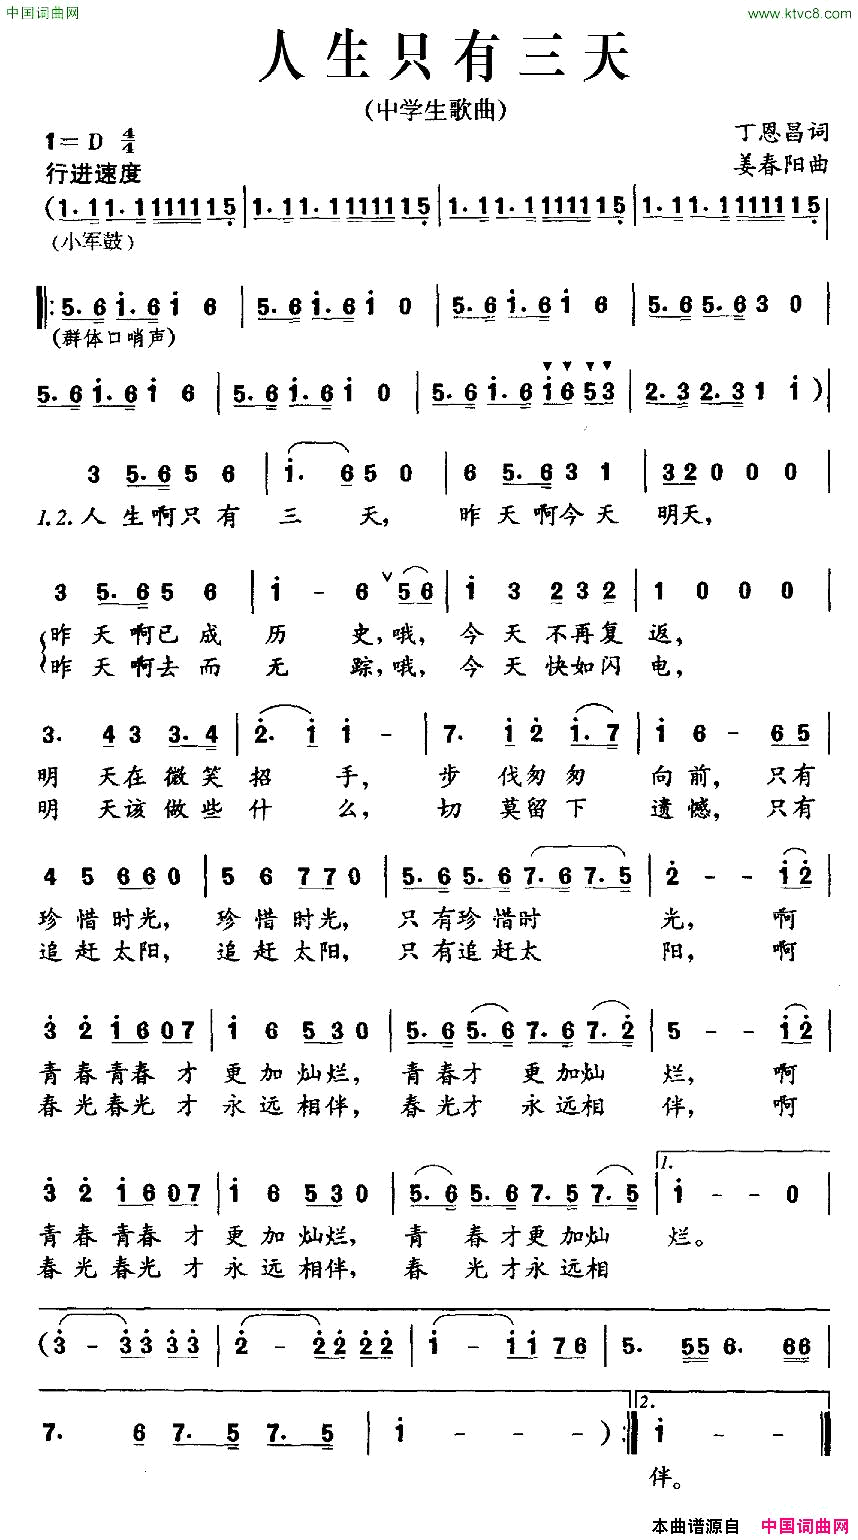 中国词曲网
www.ktvc8.com
人生只有三天
(中学生歌曲)
1=D 4/4
丁恩昌词
行进速度
姜春阳曲
(1.11.11111115 | 1.11.11111115 | 1.11.11111115 | 1.11.11111115 |
(小军鼓)
‖:5.6i.6i 6 | 5.6i.6i 0 | 5.6i.6i 6 | 5.65.63 0 |
(群体口哨声)
5.6i.6i 6 | 5.6i.6i 0 | 5.6i.6i653 | 2.32.31 i) |
3 5.65 6 | i. 650 | 6 5.631 | 32000 |
1.2.人生啊只有三天,昨天啊今天明天,
3 5.65 6 | i - 6 56 | i 3 232 | 1 0 0 0 |
昨天啊已成历史,哦,今天不再复返,
昨天啊去而无踪,哦,今天快如闪电,
3. 43 3.4 | 2. i i - | 7. i2 i.7 | i 6 - 65 |
明天在微笑招手,步伐匆匆向前,只有
明天该做些什么,切莫留下遗憾,只有
4 5 660 | 5 6 770 | 5.65.67.67.5 | 2 - - i2 |
珍惜时光,珍惜时光,只有珍惜时光,啊
追赶太阳,追赶太阳,只有追赶太阳,啊
3 2 i607 | i 6 530 | 5.65.67.67.2 | 5 - - i2 |
青春青春才更加灿烂,青春才更加灿烂,啊
春光春光才永远相伴,春光才永远相伴,啊
3 2 i607 | i 6 530 | 5.65.67.57.5 | 1. i - - 0 |
青春青春才更加灿烂,青春才更加灿烂。
春光春光才永远相伴,春光才永远相
(3 - 3333 | 2 - 2222 | i - ii76 | 5. 556. 66 |
7. 67.57.5 | i - - -):‖ 2. i - - - ‖
伴。
本曲谱源自 中国词曲网